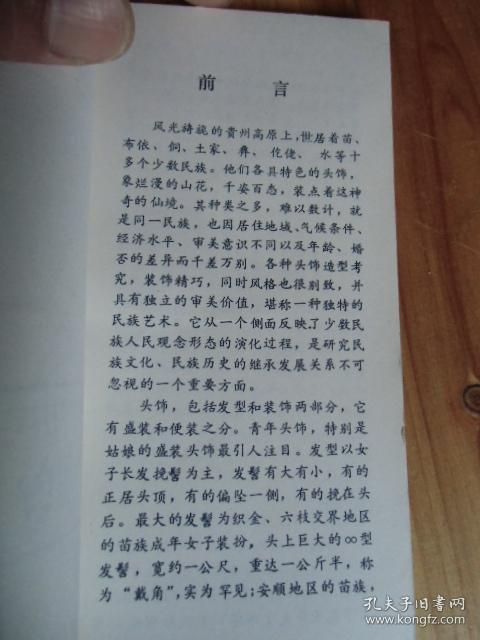 前 言
风光旖旎的贵州高原上，世居着苗、
布依、侗、土家、彝、仡佬、水等十
多个少数民族。他们各具特色的头饰，
象烂漫的山花，千姿百态，装点着这神
奇的仙境。其种类之多，难以数计，就
是同一民族，也因居住地域、气候条件、
经济水平、审美意识不同以及年龄、婚
否的差异而千差万别。各种头饰造型考
究，装饰精巧，同时风格也很别致，并
具有独立的审美价值，堪称一种独特的
民族艺术。它从一个侧面反映了少数民
族人民观念形态的演化过程，是研究民
族文化、民族历史的继承发展关系不可
忽视的一个重要方面。
头饰，包括发型和装饰两部分，它
有盛装和便装之分。青年头饰，特别是
姑娘的盛装头饰最引人注目。发型以女
子长发挽髻为主，发髻有大有小，有的
正居头顶，有的偏坠一侧，有的挽在头
后。最大的发髻为织金、六枝交界地区
的苗族成年女子装扮，头上巨大的∞型
发髻，宽约一公尺，重达一公斤半，称
为“戴角”，实为罕见；安顺地区的苗族，
孔夫子旧书网
book.kongfz.com